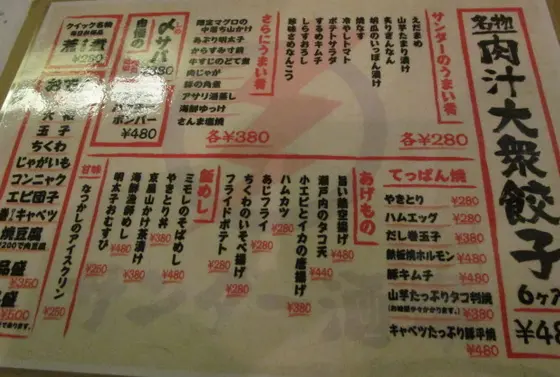 名物
肉汁大衆餃子
6ヶ
サンダーのうまい肴
えだまめ
山芋たまり漬け
炙りぎんなん
胡瓜のいっぽん漬け
焼なす
冷やしトマト
ポテトサラダ
するめキムチ
しらすおろし
珍味さめなんこつ
各¥280
さらにうまい肴
限定マグロの
中落ち山かけ
あぶり明太子
からすみ寸焼
牛すじのどて煮
肉じゃが
豚の角煮
アサリ酒蒸し
海鮮ゆっけ
さんま塩焼
各¥380
自慢の
〆サバ
¥380
ボンバー
¥480
クイック名物
¥250
玉子
ちくわ
じゃがいも
コンニャク
エビ団子
キャベツ
¥350
¥500
てっぱん焼
やきとり
¥280
ハムエッグ
¥280
だし巻玉子
¥380
鉄板焼ホルモン
¥480
豚キムチ
¥480
山芋たっぷりタコ判焼
¥480
キャベツたっぷり豚平焼
¥480
あげもの
旨い熟空揚げ
¥480
瀬戸内のタコ天
¥440
小エビとイカの唐揚げ
¥380
ハムカツ
¥280
あじフライ
¥280
ちくわのいそべ揚げ
¥280
フライドポテト
¥280
飯めし
ミモレのそばめし
¥480
やきとり丼
¥380
京風山かけ茶漬け
¥380
海鮮漁師めし
¥480
明太子おむすび
¥280
甘味
なつかしのアイスクリン
¥280